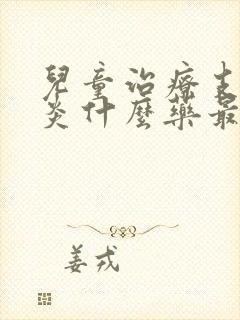 兒童治療支
炎什麼藥最
姜戎